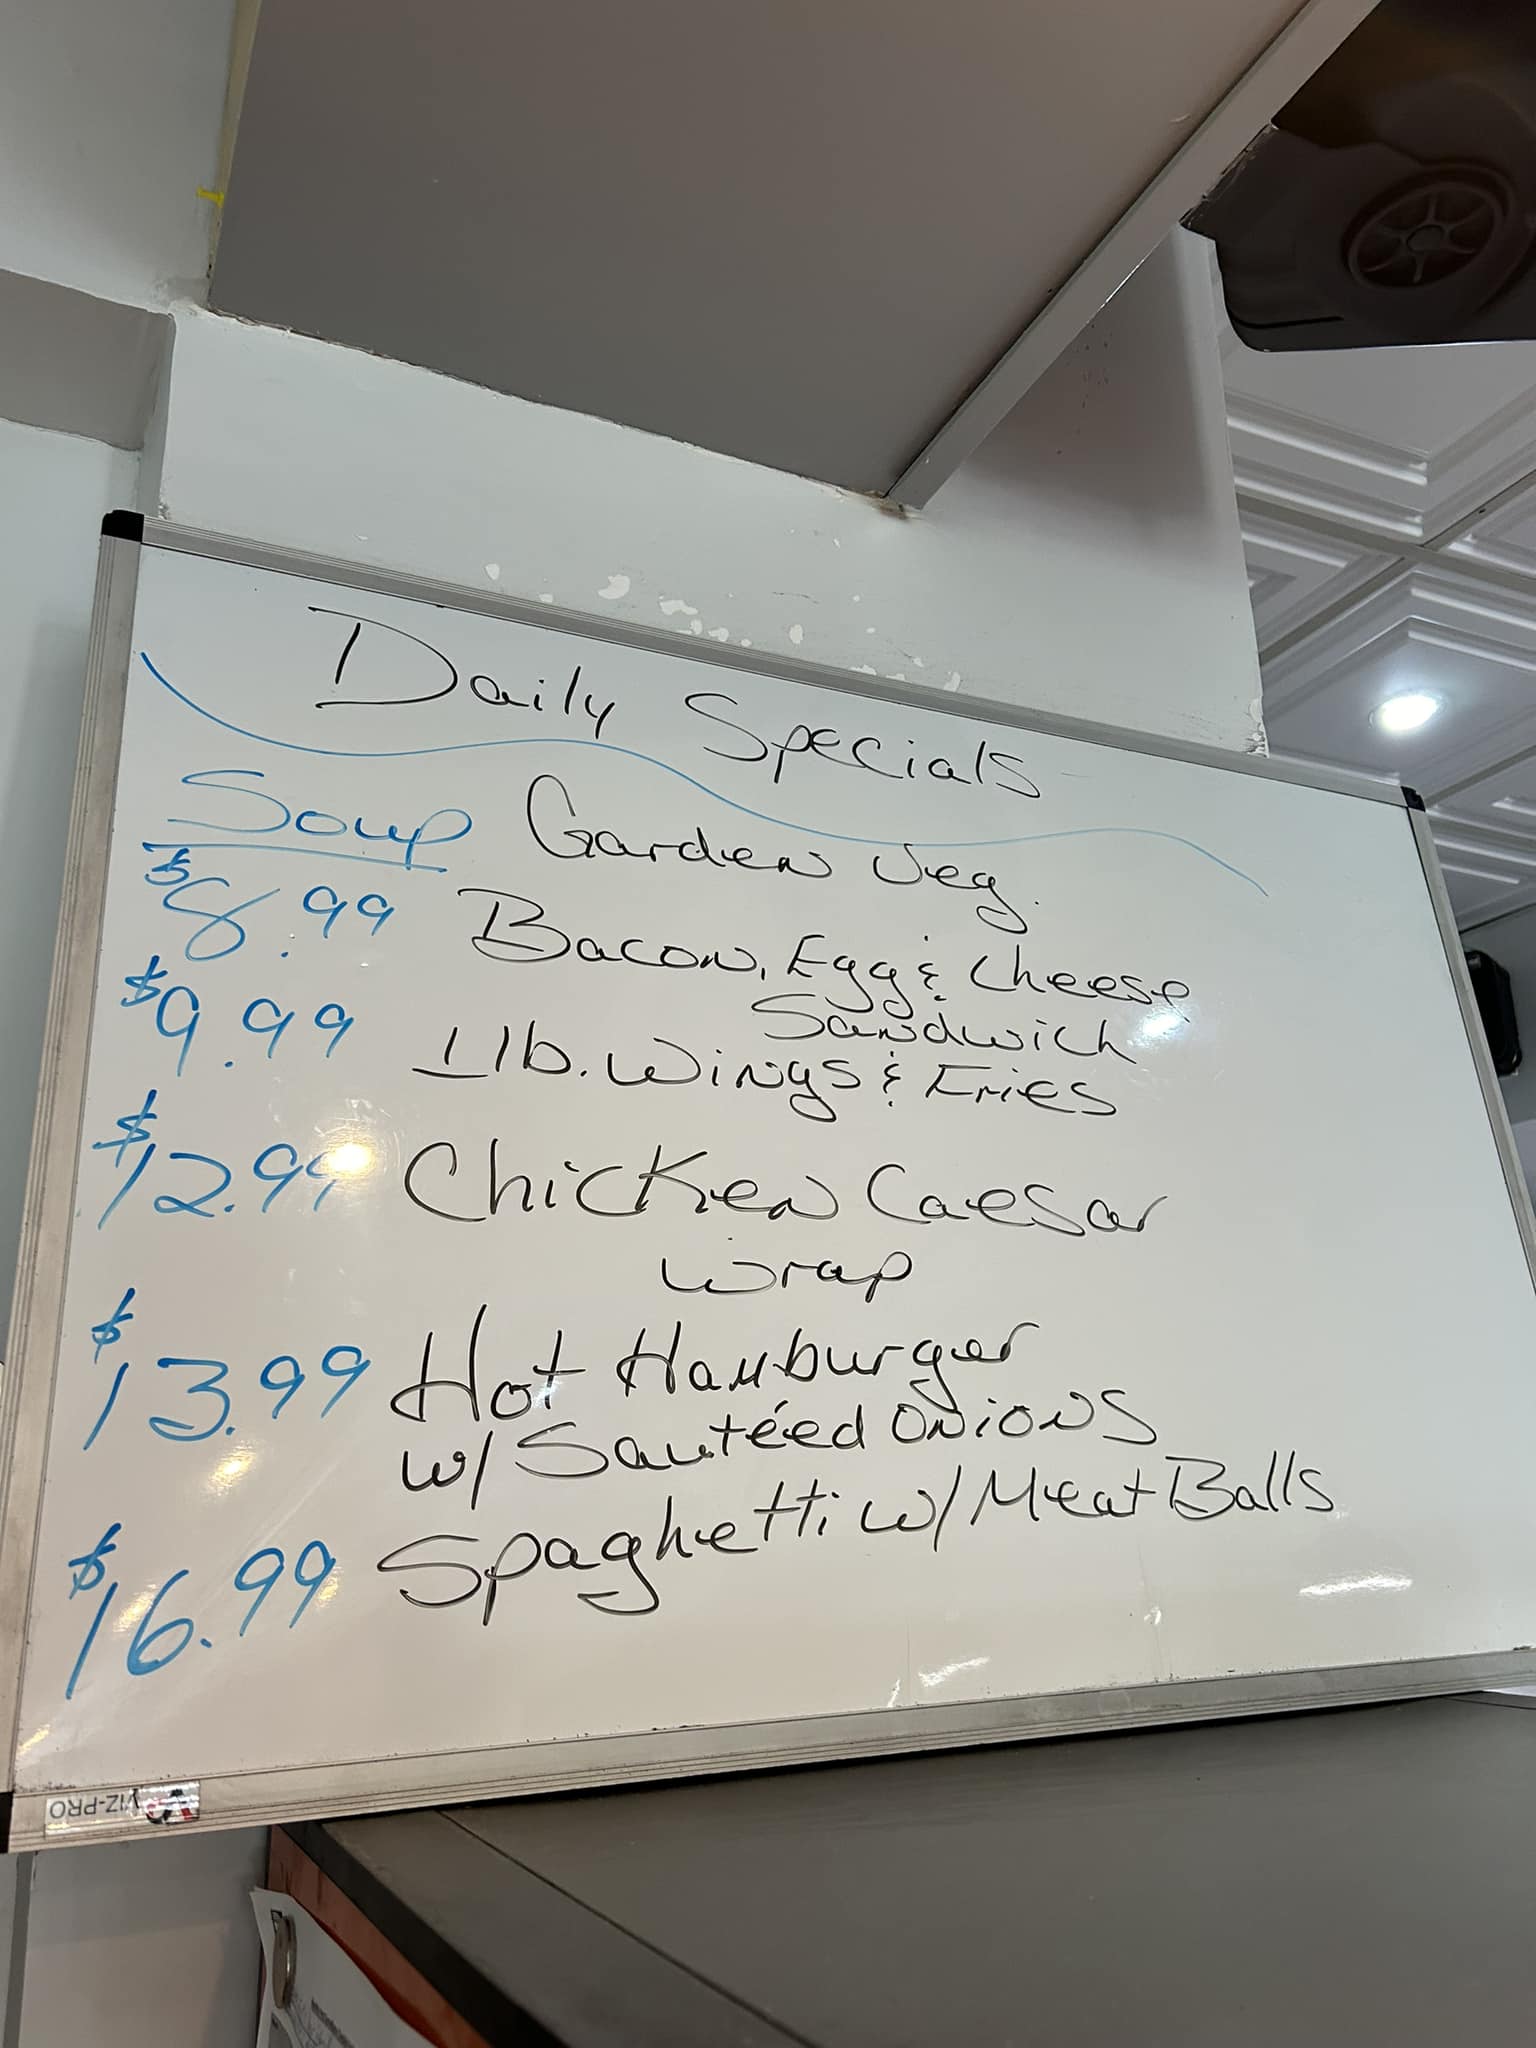 Daily Specials
Soup Garden Veg.
$8.99 Bacon, Egg & Cheese
Sandwich
$9.99 1 lb. Wings & Fries
$12.99 Chicken Caesar
Wrap
$13.99 Hot Hamburger
w/ Sautéed Onions
$16.99 Spaghetti w/ Meat Balls
VIZ-PRO